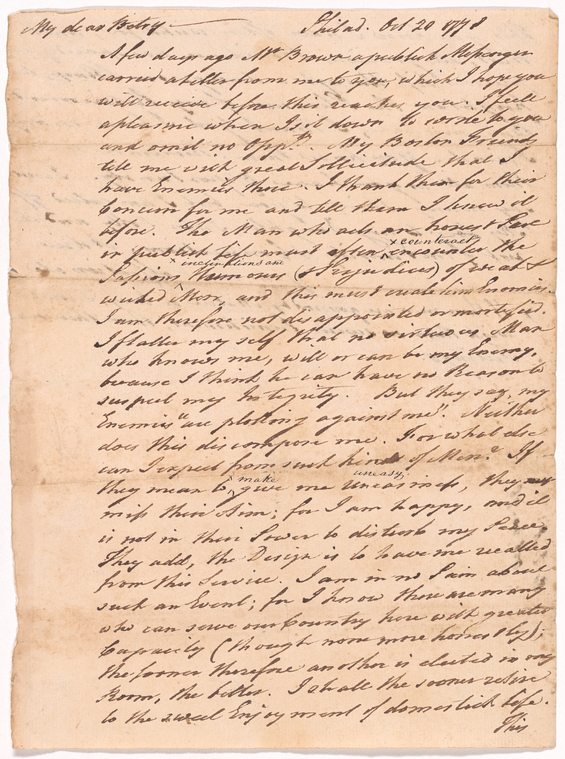 My dear Betsy Philad. Oct 20 1778
A few days ago Mr Brown a publick Messenger
carried a Letter from me to you, which I hope you
will receive before this reaches you. I feell
a pleasure when I sit down to write to you
and omit no Oppty. My Boston Friends
tell me with great Sollicitude that I
have Enemies there. I thank them for their
Concern for me and tell them I knew it
before. The Man who acts an honest Part
in publick life, must often encounter the
x counteract
inclinations and
Passions Humours (& Prejudices) of weak &
wicked Men, and this must create him Enemies.
I am therefore not disappointed or mortified.
I flatter my self that no virtuous Man
who knows me, will or can be my Enemy,
because I think he can have no Reason to
suspect my Integrity. But they say, my
Enemies "are plotting against me". Neither
does this discompose me. For what else
can I expect from such kind of Men? If
make uneasy,
they mean to give me Uneasiness, they
miss their Aim; for I am happy, and it
is not in their Power to disturb my Peace.
They add, the Design is to have me recalled
from this Service. I am in no Pain about
such an Event; for I know there are many
who can serve our Country here with greater
Capacity (though none more honestly);
the sooner therefore another is elected in my
Room, the better. I shall the sooner retire
to the sweet Enjoyment of domestick Life.
This